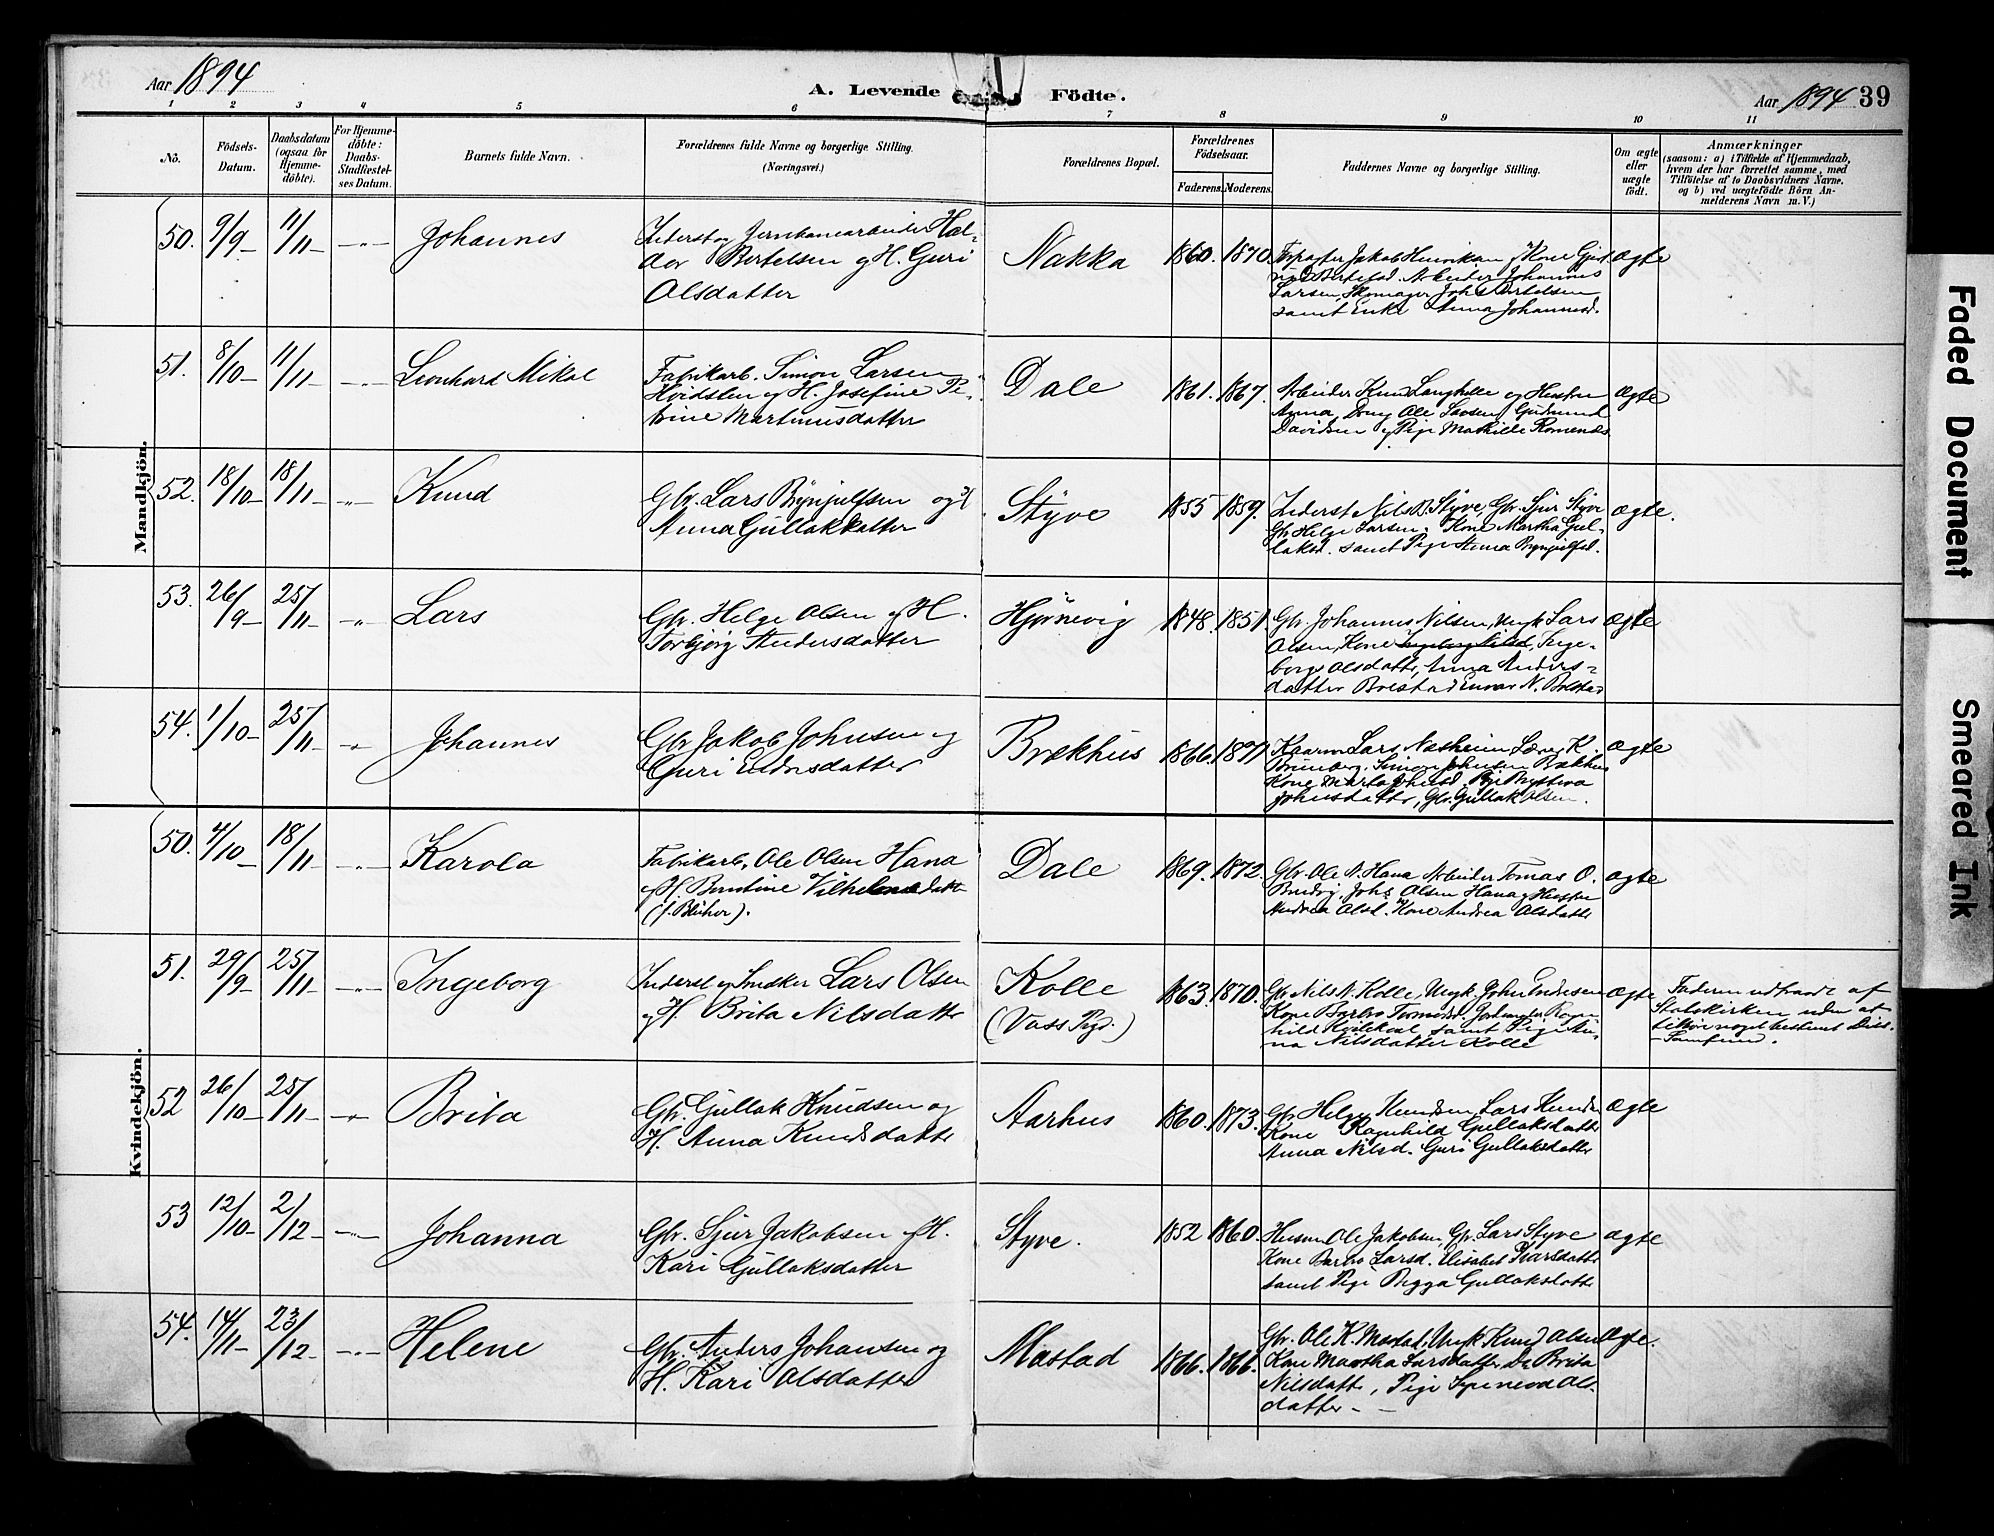 Aar 1894
A. Levende Födte.
Aar 1894 39
1 2 3 4 5 6 7 8 9 10 11
Nö.
Födsels-Datum.
Daabsdatum (ogsaa for Hjemme-döbte).
For Hjemme-döbte: Daabs-Stadfæstel-ses Datum.
Barnets fulde Navn.
Forældrenes fulde Navne og borgerlige Stilling.
(Næringsvei.)
Forældrenes Bopæl.
Forældrenes Födselsaar.
Faderens. Moderens.
Faddernes Navne og borgerlige Stilling.
Om ægte eller uægte födt.
Anmærkninger
(saasom: a) i Tilfælde af Hjemmedaab,
hvem der har forrettet samme, med
Tilföielse af to Daabsvidners Navne,
og b) ved uægtefödte Börn An-
melderens Navn m. V.)
Mandkjön.
50. 9/9- 11/11- -"- Johannes
Inderst og Jernbanearbeider Hal-
dor Bertelsen og H. Guri
Olsdatter
Nakka 1860. 1870.
Forpagter Jakob Henriksen og Kone
Arbeider Johannes
Larsen, Skomager Johs Bertelsen
samt Enke Anna Johannesd.
ægte
51. 8/10- 11/11- -"- Leonhard Mikal
Fabrikarb. Simon Larsen
Hvidsten og H. Josefine Pe-
trine Martinusdatter
Dale 1861. 1867.
Arbeider Knud Langhelle og Hustru
Anna, Ole Larsen, Gudmund
Davidsen og Pige Mathilde
ægte
52. 18/10- 18/11- -"- Knud
Gbr. Lars Brynjulfsen og H
Anna Gullaksdatter
Styve 1855 1859.
Inderst Nils B. Styve, Gbr. Sjur Styve
Gbr Helge Larsen. Kone Martha Gul-
laksd. samt Pige Anna Brynjulfsd.
ægte.
53. 26/9- 25/11- -"- Lars
Gbr. Helge Olsen og H.
Torbjørg Andersdatter
Hjørnevig 1848. 1851.
Gbr. Johannes Nilsen, Ungk Lars
Olsen, Kone Ingeborg Nilsd, Inge-
borg Olsdatter, Anna Anders-
datter N. Bolstad
ægte
54. 1/10- 25/11- -"- Johannes
Gbr Jakob Johnsen og
Guri Endresdatter
Brækhus 1866. 1871.
Lars Næsheim, Lærer K.
Brunborg, Simon Johnsen Brækhus
Kone
Johnsdatter, Gbr. Gullak Olsen.
ægte
Kvindekjön.
50. 4/10- 18/11- -"- Karola
Fabrikarb. Ole Olsen Hana
og H. Berntine Vilhelmsdatter
(f. Blüher).
Dale 1869. 1872.
Gbr. Ole N. Hana Arbeider Tomas O.
Johs Olsen Hana og Hustru
Andrea Olsd. Kone Andrea Olsdatter
ægte
51. 29/9- 25/11- -"- Ingeborg
Inderst og Snedker Lars Olsen
og H. Brita Nilsdatter
Kolle
(Vass Pgd.)
1863. 1870.
Gbr Nils N. Kolle, Ungk. John Endresen
Kone Barbro
hild Kvitekval samt Pige An-
na Nilsdatter Kolle
ægte
Faderen udtraadt af
Statskirken uden at
tilhøre noget bestemt Diss.
-Samfund.
52 26/10- 25/11- -"- Brita
Gbr. Gullak Knudsen og
H. Anna Knudsdatter
Aarhus 1860. 1873.
Gbr Helge Knudsen, Lars Knudsen
Kone Ragnhild Gullaksdatter
Anna Nilsd. Guri Gullaksdatter
ægte
53 12/10- 2/12- -"- Johanna
Gbr. Sjur Jakobsen og H.
Kari Gullaksdatter
Styve. 1852 1860.
Husm Ole Jakobsen, Gbr. Lars Styve
Kone Barbro Larsd. Elisabet Ivarsdatter
samt Pige Brygga Gullaksdatter
ægte
54. 14/11- 23/12- -"- Helene
Gbr. Anders Johansen og
H. Kari Olsdatter
Mastad 1866. 1866.
Gbr. Ole K. Mastad, Ungk Knud Olsen
Kone Martha Larsdatter, Do Brita
Nilsdatter, Pige Synneva Ols-
datter-
ægte.
Faded Document
Smeared Ink